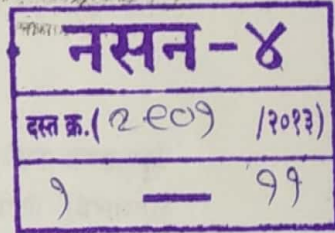 नसन-४
दस्त क्र.(२९०१ /२०१३)
१ — ११